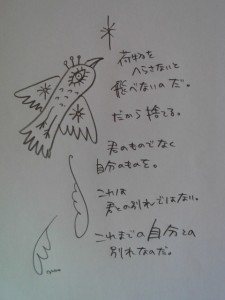 荷物を
へらさないと
飛べないのだ。
だから捨てる。
君のものでなく
自分のものを。
これは
君との別れではない。
これまでの自分との
別れなのだ。